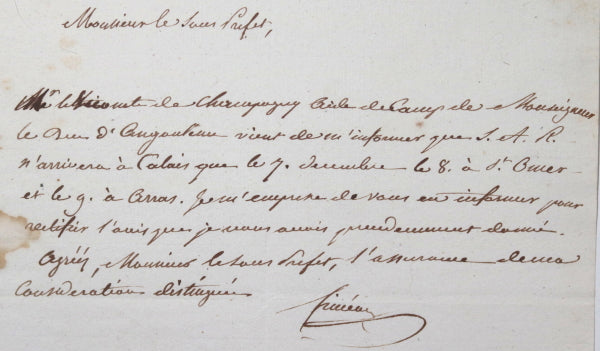 Monsieur le Sous Prefet,
Mr. le Vicomte de Champagny Aide de Camp de Monseigneur
le Duc d'Angouleme vient de m'informer que S. A. R.
n'arrivera à Calais que le 7. decembre le 8. à St. Omer
et le 9. à Arras. Je m'empresse de vous en informer pour
rectifier l'avis que je vous avois precedemment donné.
Agréés, Monsieur le Sous Prefet, l'assurance de ma
Consideration distinguée
Siméon